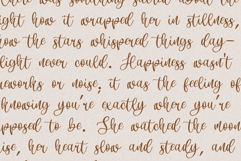 there was something sacred about the
ight how it wrapped her in stillness,
how the stars whispered things day—
light never could. Happiness wasn't
reworks or noise, it was the feeling of
knowing you're exactly where you're
pposed to be. She watched the moon
ise, her heart slow and steady, and